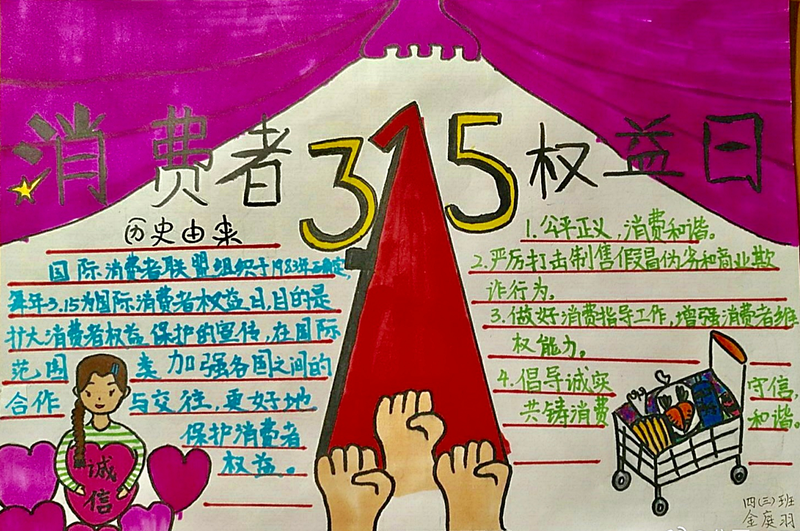 消费者 315 权益日
历史由来
国际消费者联盟组织于1983年正确定,
每年3.15为国际消费者权益日,目的是
扩大消费者权益保护的宣传,在国际
范围 类加强各国之间的
合作 与交往,更好地
保护消费者
权益。
诚
信
1.公平正义,消费和谐。
2.严厉打击制售假冒伪劣和商业欺
诈行为。
3.做好消费指导工作,增强消费者维
权能力。
4.倡导诚实 守信,
共铸消费 和谐。
四(三)班
金庭羽